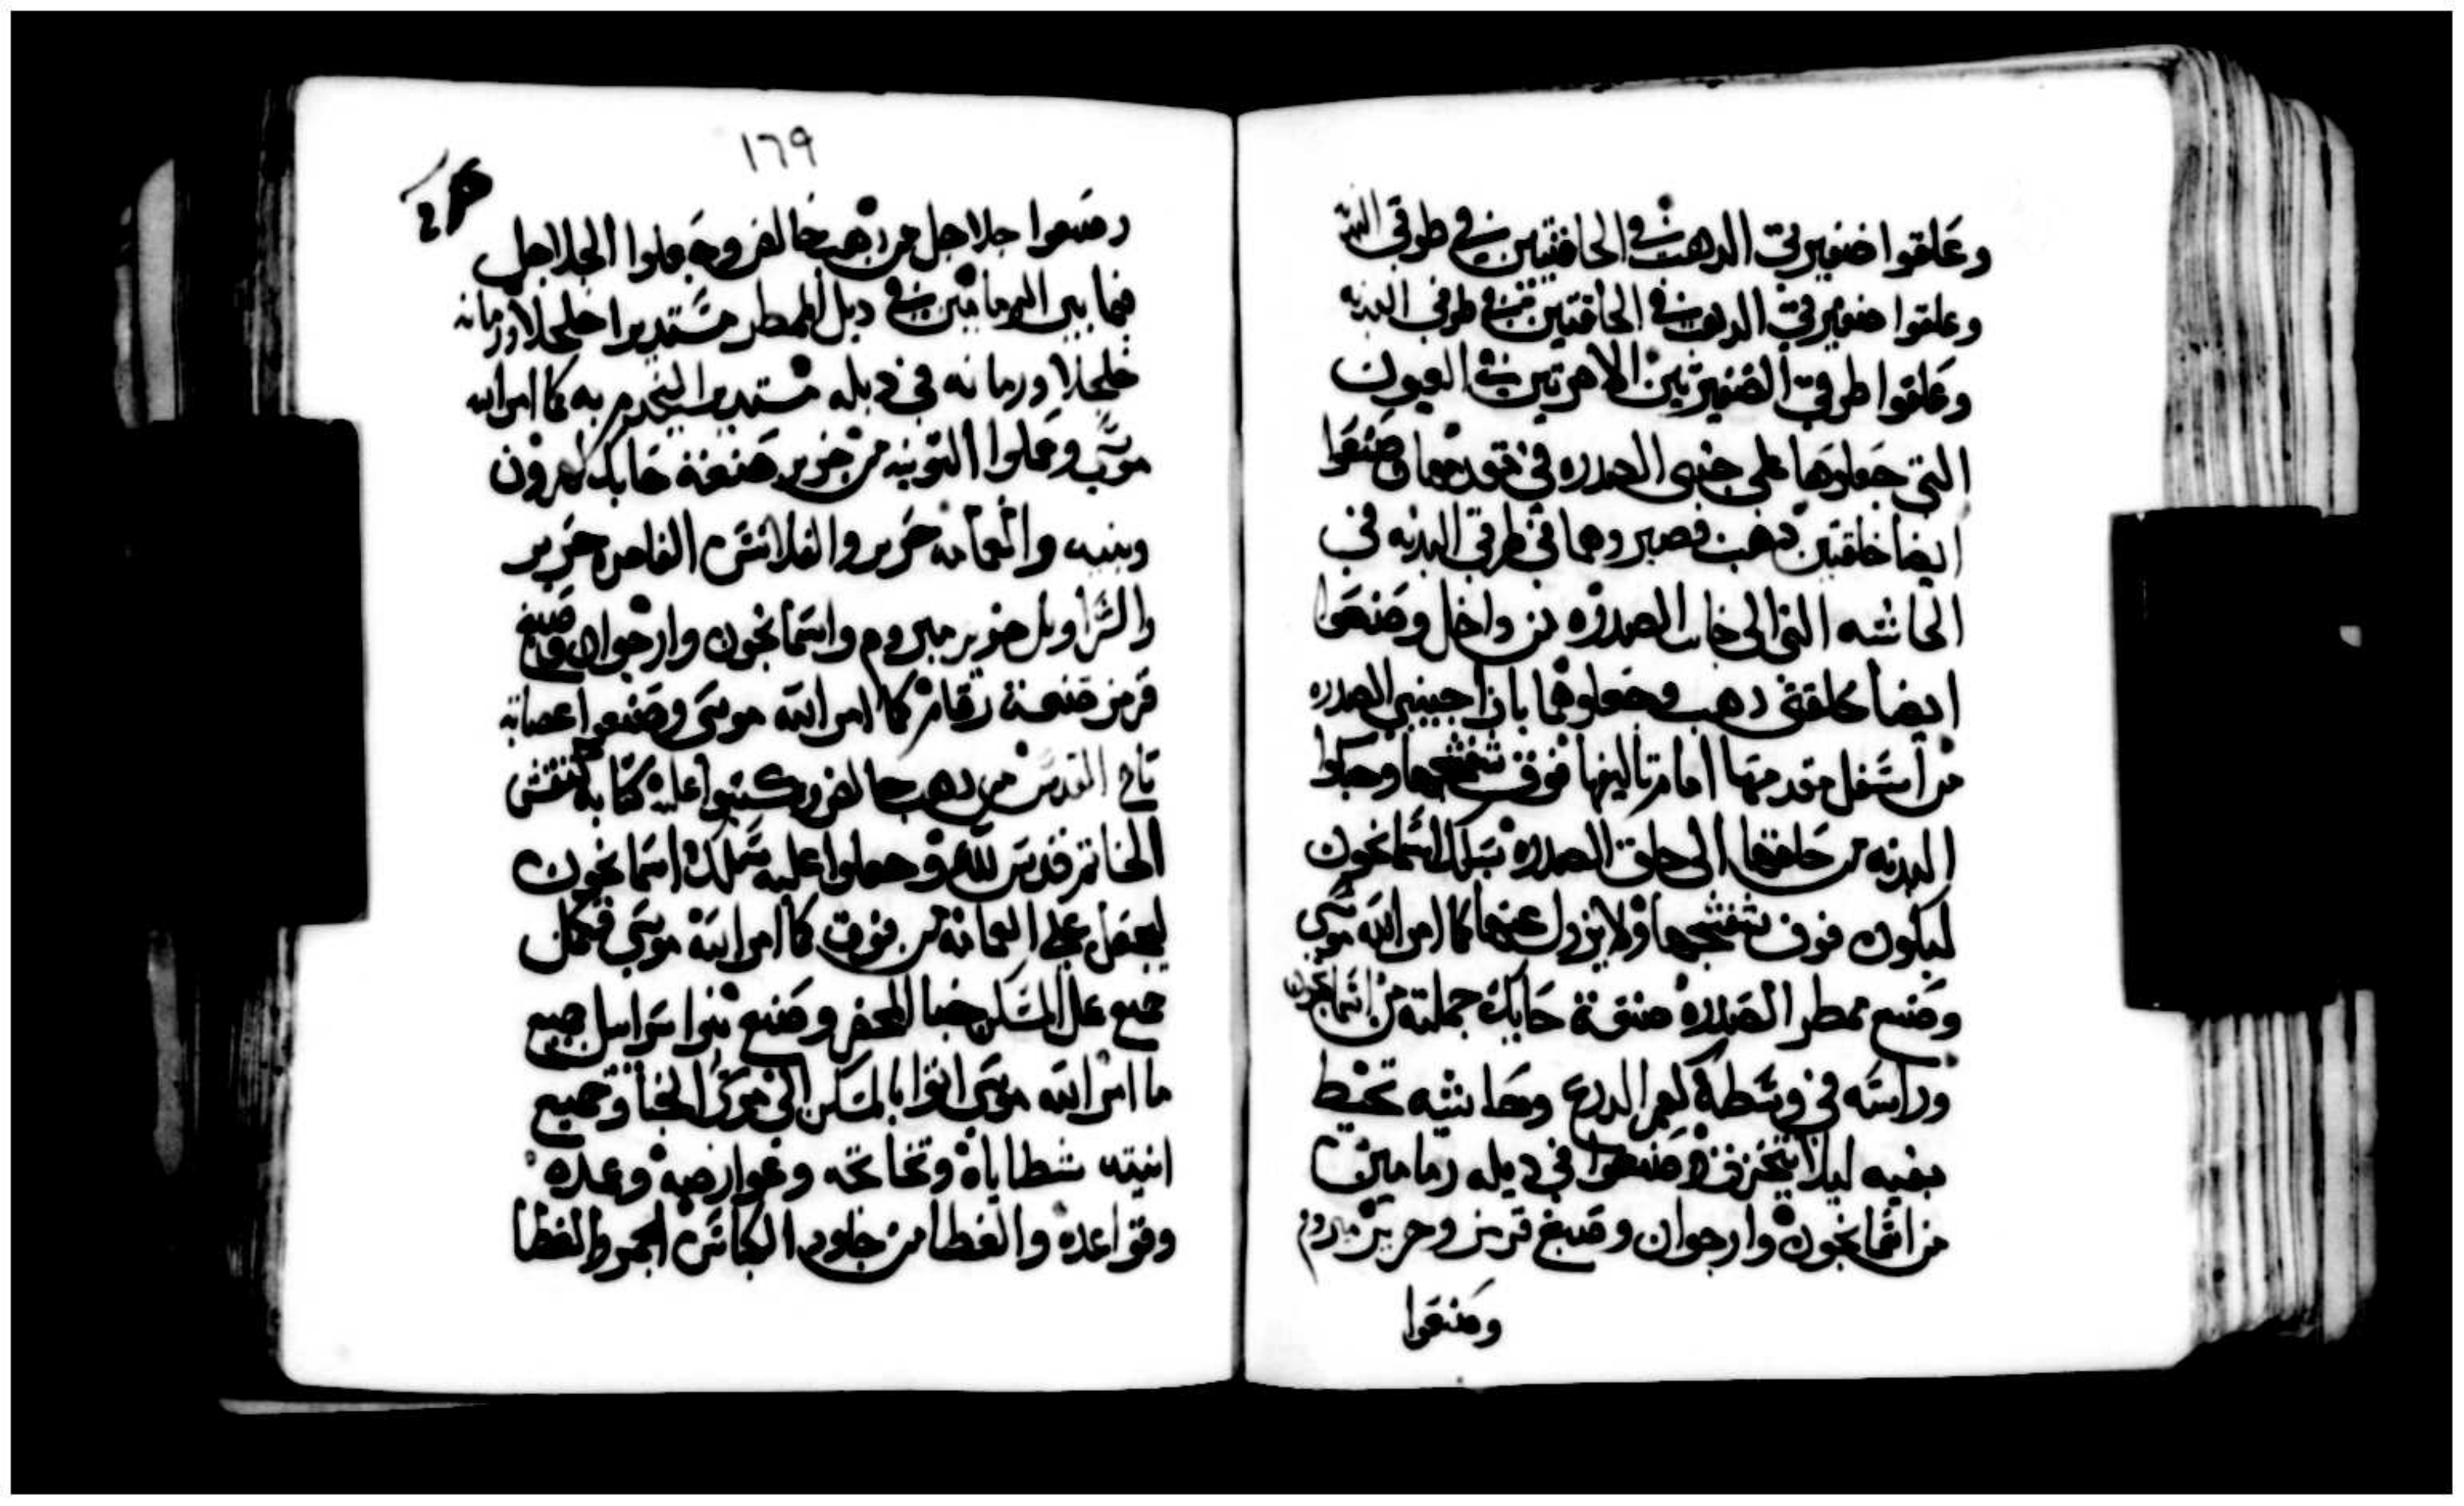 وعلقوا ضفيرتي الدهب في الحافتين في طرفي
وعلقوا ضفيرتي الدهب في الحلقتين في طرفي البدنه
وعلقوا طرفي الضفيرتين الاخرتين في العيون
التي جعلوها على جنبي الصدره في مقدمها وصنعوا
ايضا حلقتين دهب وصيروهما في طرفي البدنه في
الحاشيه التي الى جانب الصدره من داخل وصنعوا
ايضا حلقتي دهب وجعلوهما بازا جيبي الصدره
من اسفل مقدمها امام تاليفها فوق شفشجها وحبكوا
البدنه من حلقتها الى حلق الصدره بسلك اسمانجون
ليكون فوق شفشجها ولا يزول عنها كما امر الله موسى
وصنع ممطر الصدره صنعة حايك جملته من اسمانجون
وراسه في وسطه كفم الدرع وحاشيه تحيط
بفيه ليلا ينخرق وصنعوا في ديله رمامين
من اسمانجون وارجوان وصبغ قرمز وحرير مبروم
وصنعوا
١٦٩
وصنعوا جلاجل من دهب خالص وجعلوا الجلاجل
فيما بين الرمامين في ديل الممطر مستديرا جلجلا ورمانه
جلجلا ورمانه في ديله مستديرا ليخدم به كما امر الله
موسى وعملوا التونيه من حرير صنعة حايك لهرون
وبنيه والعمامه حرير والقلانس الفاخره حرير
والسراويل حرير مبروم واسمانجون وارجوان وصبغ
قرمز صنعة رقام كما امر الله موسى وصنعوا عصابة
تاج القدس من دهب خالص وكتبوا عليه كتابة كنقش
الخاتم قدس لله وجعلوا عليه سلك اسمانجون
ليجعل على العمامه من فوق كما امر الله موسى فكمل
جميع عمل المسكن خبا المحضر وصنع بنوا اسراييل جميع
ما امر الله موسى اتوا بالمسكن الى موسى الخبا وجميع
انيته شظاياه وتخاتجه وعوارضه وعمده
وقواعده والغطا من جلود الكباش المحمره والغطا